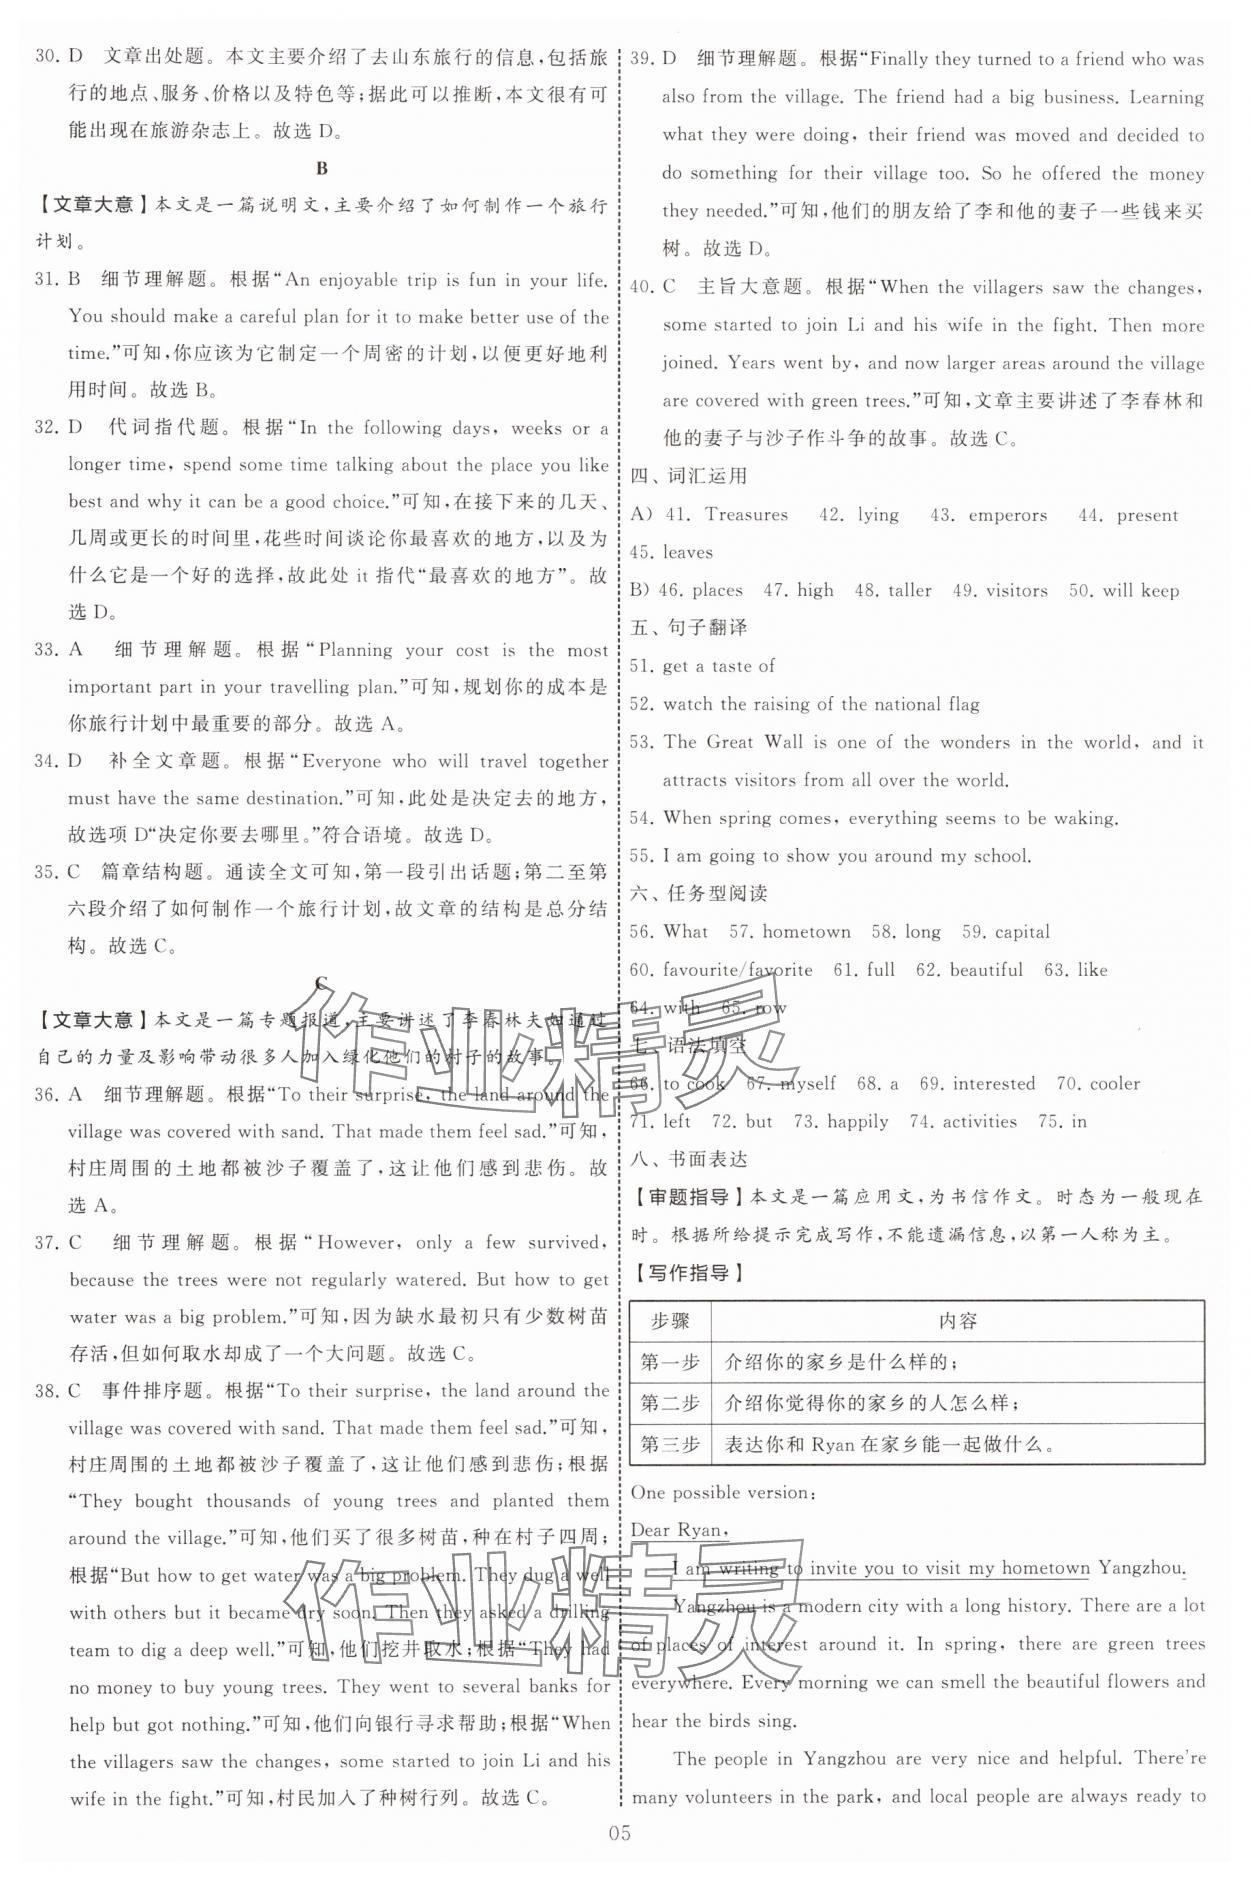 30. D　文章出处题。本文主要介绍了去山东旅行的信息,包括旅
行的地点、服务、价格以及特色等;据此可以推断,本文很有可
能出现在旅游杂志上。故选 D。
B
【文章大意】本文是一篇说明文,主要介绍了如何制作一个旅行
计划。
31. B　细节理解题。根据“An enjoyable trip is fun in your life.
You should make a careful plan for it to make better use of the
time.”可知,你应该为它制定一个周密的计划,以便更好地利
用时间。故选 B。
32. D　代词指代题。根据“In the following days, weeks or a
longer time, spend some time talking about the place you like
best and why it can be a good choice.”可知,在接下来的几天、
几周或更长的时间里,花些时间谈论你最喜欢的地方,以及为
什么它是一个好的选择,故此处 it 指代“最喜欢的地方”。故
选 D。
33. A　细节理解题。根据“Planning your cost is the most
important part in your travelling plan.”可知,规划你的成本是
你旅行计划中最重要的部分。故选 A。
34. D　补全文章题。根据“Everyone who will travel together
must have the same destination.”可知,此处是决定去的地方,
故选项 D“决定你要去哪里。”符合语境。故选 D。
35. C　篇章结构题。通读全文可知,第一段引出话题;第二至第
六段介绍了如何制作一个旅行计划,故文章的结构是总分结
构。故选 C。
C
【文章大意】本文是一篇专题报道,主要讲述了李春林夫妇通过
自己的力量及影响带动很多人加入绿化他们的村子的故事。
36. A　细节理解题。根据“To their surprise, the land around the
village was covered with sand. That made them feel sad.”可知,
村庄周围的土地都被沙子覆盖了,这让他们感到悲伤。故
选 A。
37. C　细节理解题。根据“However, only a few survived,
because the trees were not regularly watered. But how to get
water was a big problem.”可知,因为缺水最初只有少数树苗
存活,但如何取水却成了一个大问题。故选 C。
38. C　事件排序题。根据“To their surprise, the land around the
village was covered with sand. That made them feel sad.”可知,
村庄周围的土地都被沙子覆盖了,这让他们感到悲伤;根据
“They bought thousands of young trees and planted them
around the village.”可知,他们买了很多树苗,种在村子四周;
根据“But how to get water was a big problem. They dug a well
with others but it became dry soon. Then they asked a drilling
team to dig a deep well.”可知,他们挖井取水;根据“They had
no money to buy young trees. They went to several banks for
help but got nothing.”可知,他们向银行寻求帮助;根据“When
the villagers saw the changes, some started to join Li and his
wife in the fight.”可知,村民加入了种树行列。故选 C。
39. D　细节理解题。根据“Finally they turned to a friend who was
also from the village. The friend had a big business. Learning
what they were doing, their friend was moved and decided to
do something for their village too. So he offered the money
they needed.”可知,他们的朋友给了李和他的妻子一些钱来买
树。故选 D。
40. C　主旨大意题。根据“When the villagers saw the changes,
some started to join Li and his wife in the fight. Then more
joined. Years went by, and now larger areas around the village
are covered with green trees.”可知,文章主要讲述了李春林和
他的妻子与沙子作斗争的故事。故选 C。
四、词汇运用
A) 41. Treasures　42. lying　43. emperors　44. present
45. leaves
B) 46. places　47. high　48. taller　49. visitors　50. will keep
五、句子翻译
51. get a taste of
52. watch the raising of the national flag
53. The Great Wall is one of the wonders in the world, and it
attracts visitors from all over the world.
54. When spring comes, everything seems to be waking.
55. I am going to show you around my school.
六、任务型阅读
56. What　57. hometown　58. long　59. capital
60. favourite/favorite　61. full　62. beautiful　63. like
64. with　65. row
七、语法填空
66. to cook　67. myself　68. a　69. interested　70. cooler
71. left　72. but　73. happily　74. activities　75. in
八、书面表达
【审题指导】本文是一篇应用文,为书信作文。时态为一般现在
时。根据所给提示完成写作,不能遗漏信息,以第一人称为主。
【写作指导】
步骤　内容
第一步　介绍你的家乡是什么样的;
第二步　介绍你觉得你的家乡的人怎么样;
第三步　表达你和 Ryan 在家乡能一起做什么。
One possible version:
Dear Ryan,
I am writing to invite you to visit my hometown Yangzhou.
Yangzhou is a modern city with a long history. There are a lot
of places of interest around it. In spring, there are green trees
everywhere. Every morning we can smell the beautiful flowers and
hear the birds sing.
The people in Yangzhou are very nice and helpful. There're
many volunteers in the park, and local people are always ready to
05
作业精灵
作业精灵